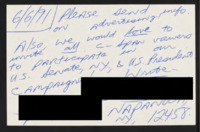 6/6/91 Please send info.
on advertising info.
Also we would love to
invite all C-Span viewers
to participate in our
U.S. Senate, NY, & U.S. President
Campaigns. Write—
Napanoch,
NY, 12458.